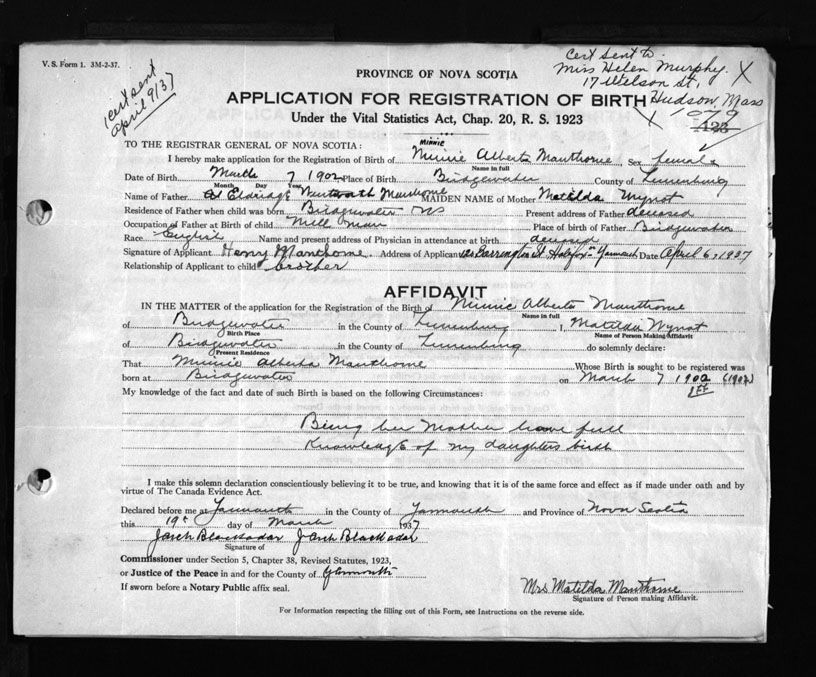 V. S. Form 1. 3M-2-37.
(cert sent
April 9/37
Cert sent to
Miss Helen Murphy. X
17 Wilson St,
Hudson, Mass
PROVINCE OF NOVA SCOTIA
APPLICATION FOR REGISTRATION OF BIRTH
X 1079
Under the Vital Statistics Act, Chap. 20, R. S. 1923
123
TO THE REGISTRAR GENERAL OF NOVA SCOTIA: MINNIE
I hereby make application for the Registration of Birth of Minnie Alberta Manthorne Sex female
Name in full
Date of Birth March 7 1902 Place of Birth Bridgewater County of Lunenburg
Month Day Year
Name of Father Eldridge Manthorne MAIDEN NAME of Mother Matilda Wynot
Residence of Father when child was born Bridgewater NS Present address of Father deceased
Occupation of Father at Birth of child Mill man Place of birth of Father Bridgewater
Race English Name and present address of Physician in attendance at birth deceased
Signature of Applicant Henry Manthorne Address of Applicant Barrington St. Halifax Yarmouth Date April 6, 1937
Relationship of Applicant to child brother
AFFIDAVIT
IN THE MATTER of the application for the Registration of the Birth of Minnie Alberta Manthorne
Name in full
of Bridgewater in the County of Lunenburg I, Matilda Wynot
Birth Place Name of Person Making Affidavit
of Bridgewater in the County of Lunenburg do solemnly declare:
Present Residence
That Minnie Alberta Manthorne Whose Birth is sought to be registered was
born at Bridgewater on March 7 1902 (1902)
My knowledge of the fact and date of such Birth is based on the following Circumstances:
Being her Mother have full
Knowledge of my daughters birth
I make this solemn declaration conscientiously believing it to be true, and knowing that it is of the same force and effect as if made under oath and by
virtue of The Canada Evidence Act.
Declared before me at Yarmouth in the County of Yarmouth and Province of Nova Scotia
this 19th day of March 1937
Jacob Blackadar Jacob Blackadar
Signature of
Commissioner under Section 5, Chapter 38, Revised Statutes, 1923,
or Justice of the Peace in and for the County of Yarmouth
If sworn before a Notary Public affix seal.
Mrs Matilda Manthorne
Signature of Person making Affidavit.
For Information respecting the filling out of this Form, see Instructions on the reverse side.